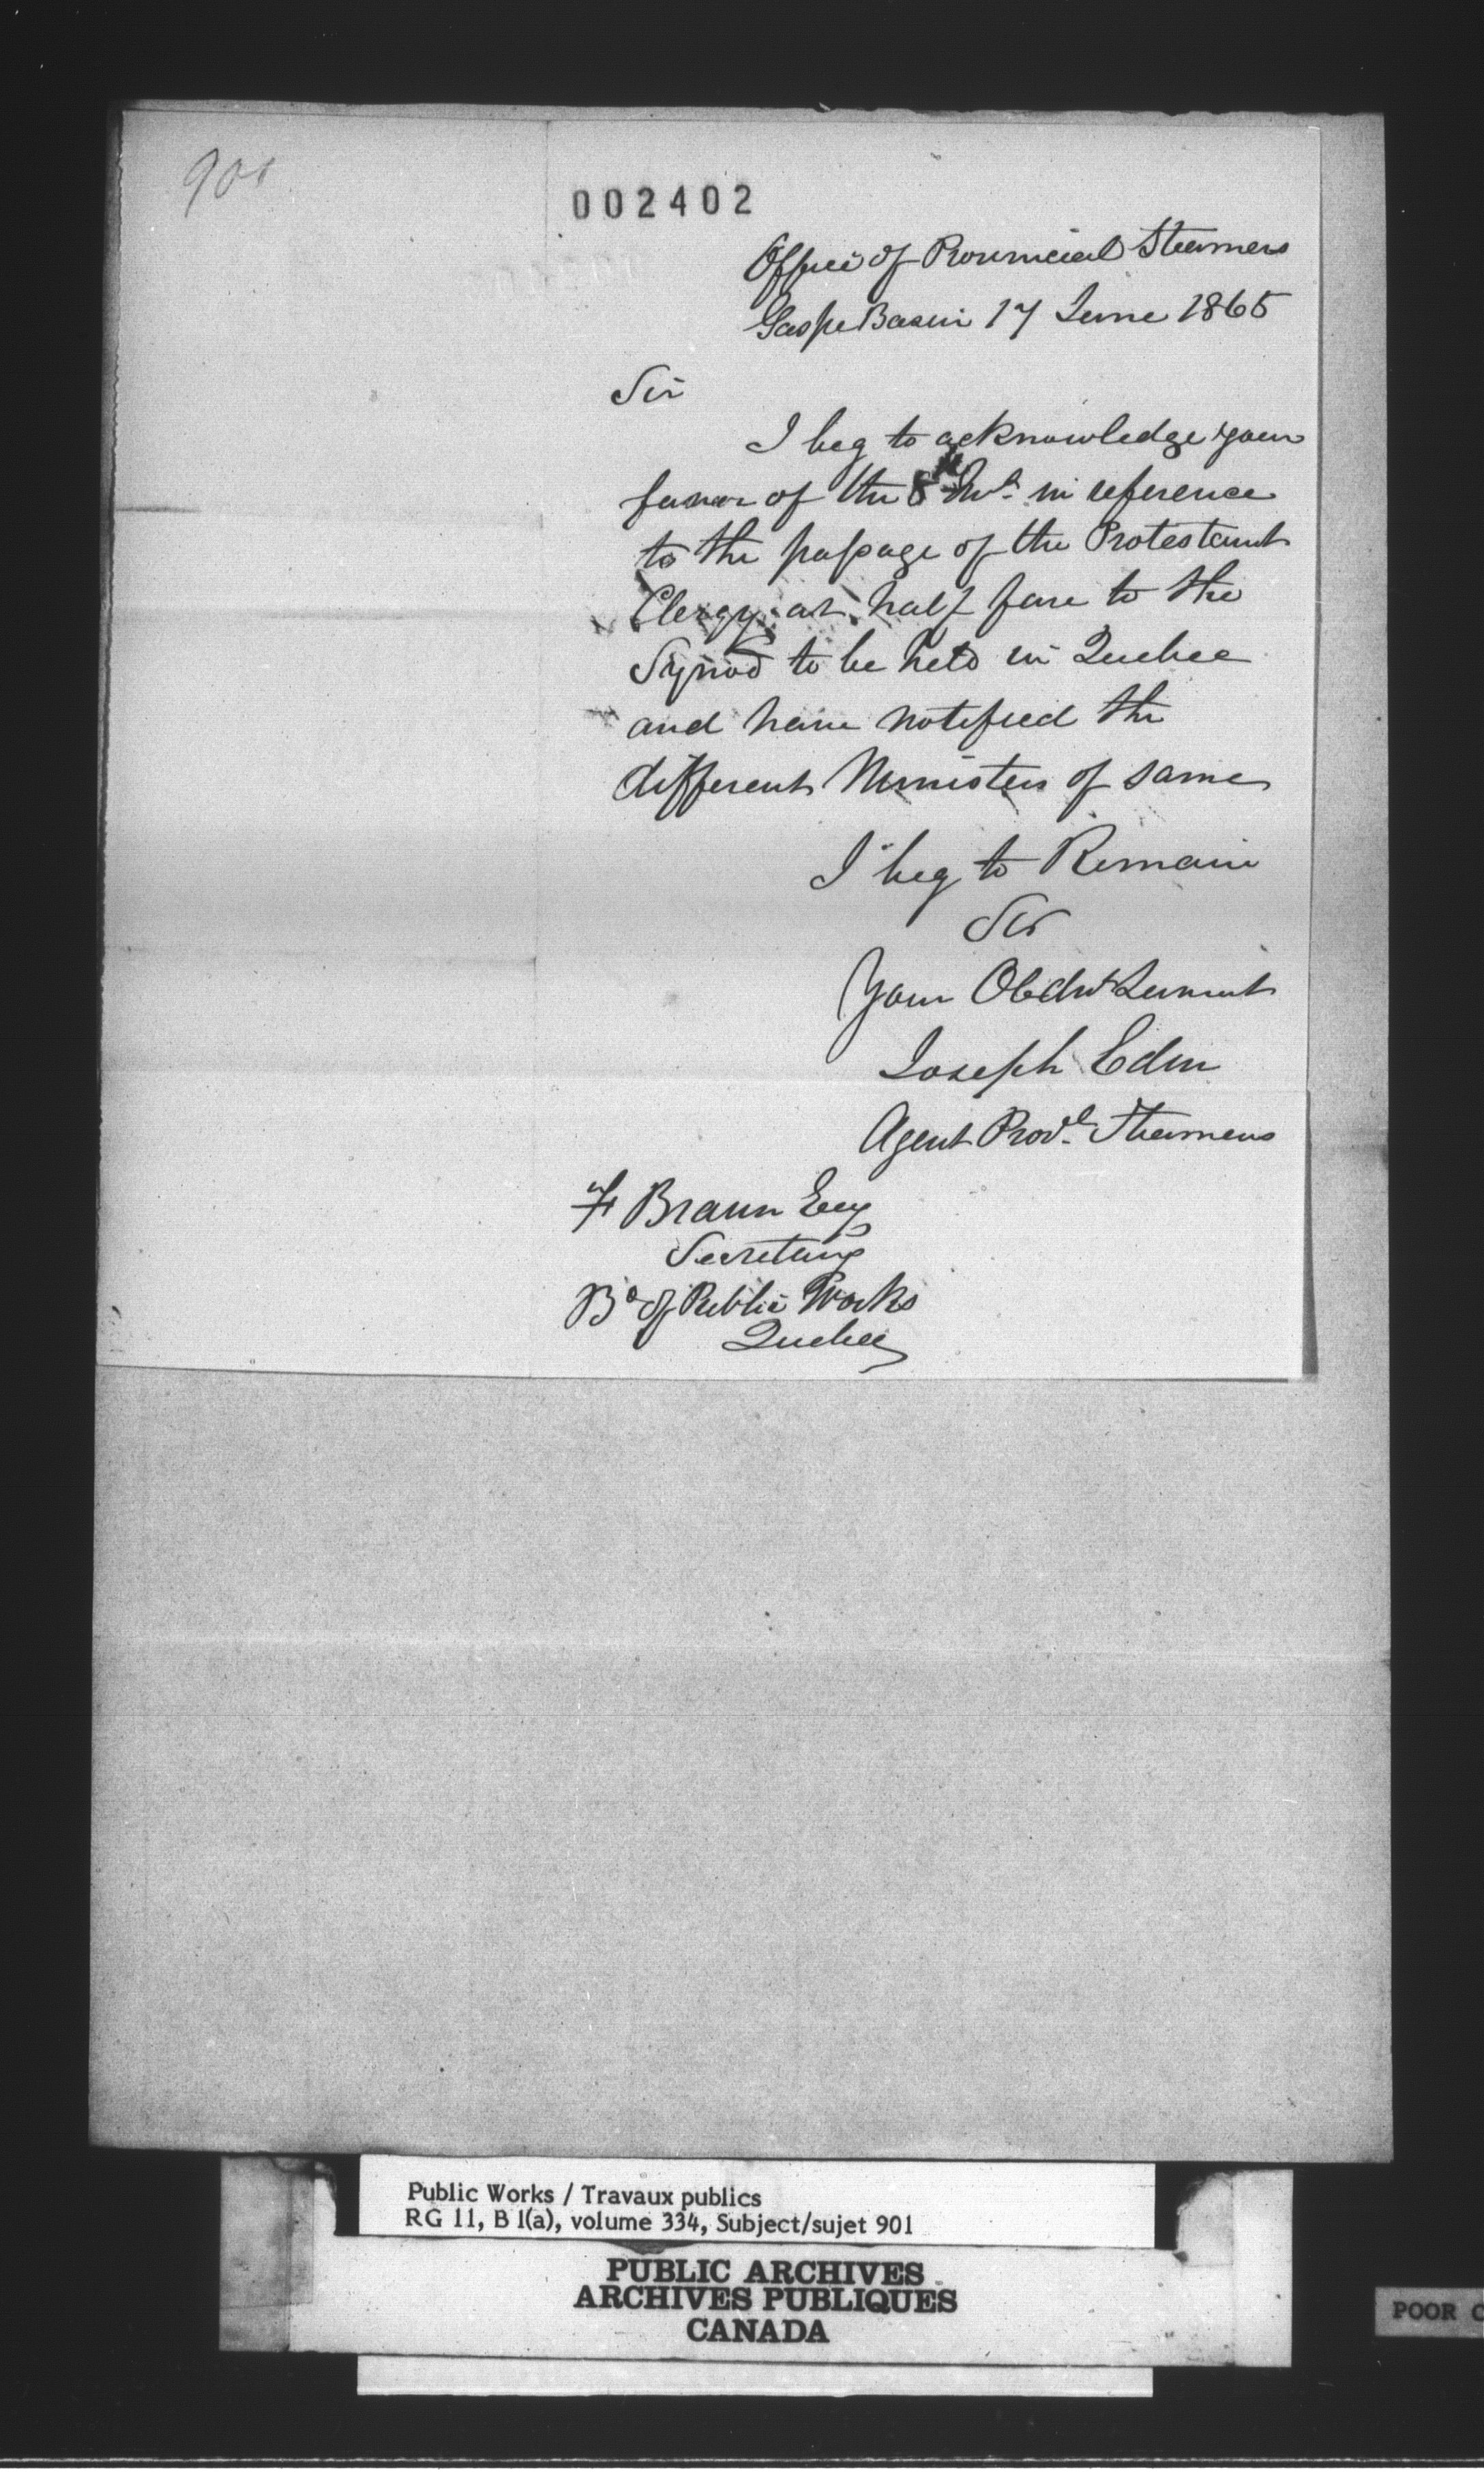 901
002402
Office of Provincial Steamers
Gaspe Basin 17 June 1865
Sir
I beg to acknowledge your
favor of the 8th Inst. in reference
to the passage of the Protestant
Clergy at half fare to the
Synod to be held in Quebec
and have notified the
different Ministers of same
I beg to Remain
Sir
Your Obdnt Servant
Joseph Eden
Agent Provl. Steamers
F Braun Esq
Secretary
Bd of Public Works
Quebec
Public Works / Travaux publics
RG 11, B 1(a), volume 334, Subject/sujet 901
PUBLIC ARCHIVES
ARCHIVES PUBLIQUES
CANADA
POOR C